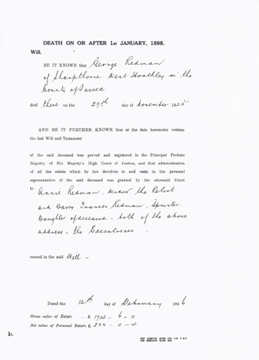 DEATH ON OR AFTER 1st JANUARY, 1898.
Will.
BE IT KNOWN that George Redman
of Sharpthorne West Hoathly in the
County of Sussex
died there on the 29th day of November 1925
AND BE IT FURTHER KNOWN that at the date hereunder written
the last Will and Testament
of the said deceased was proved and registered in the Principal Probate
Registry of His Majesty's High Court of Justice, and that administration
of all the estate which by law devolves to and vests in the personal
representative of the said deceased was granted by the aforesaid Court
to Annie Redman Widow the Relict
and Frances Redman Spinster
Daughter of deceased both of the above
address the Executrixes
named in the said Will
Dated the 12th day of February 1926
Gross value of Estate £
Net value of Personal Estate £